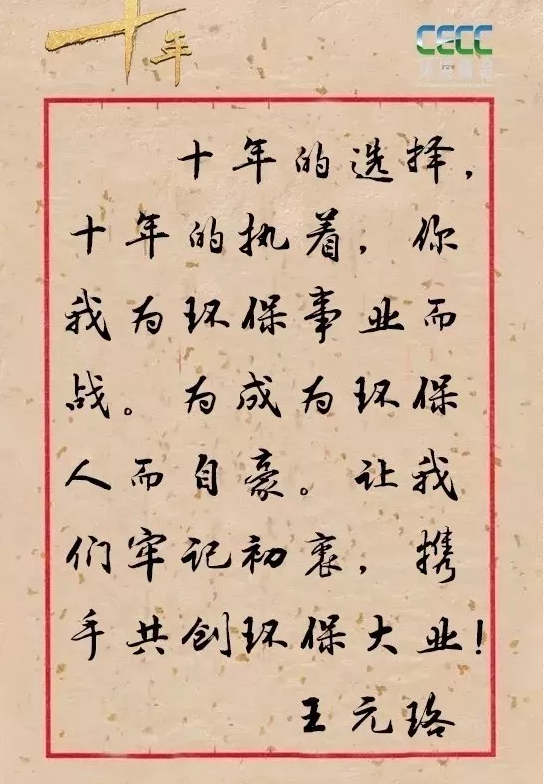 十年
CECC
十年的选择，
十年的执着，你
我为环保事业而
战。为成为环保
人而自豪。让我
们牢记初衷，携
手共创环保大业！
王元珞